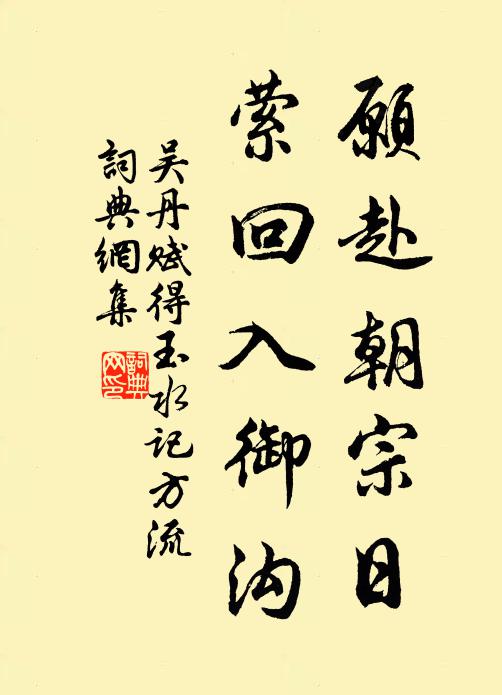 願赴朝宗日
萦回入御沟
吴丹赋得玉水记方流
詞典網集
詞典网印